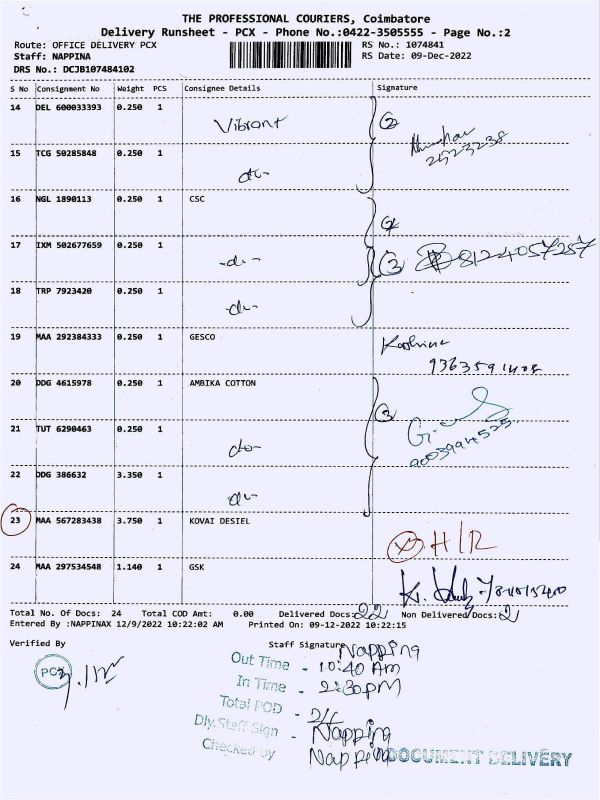 THE PROFESSIONAL COURIERS, Coimbatore
Delivery Runsheet - PCX - Phone No.:0422-3505555 - Page No.:2
Route: OFFICE DELIVERY PCX RS No.: 1074841
Staff: NAPPINA RS Date: 09-Dec-2022
DRS No.: DCJB107484102
S No Consignment No Weight PCS Consignee Details Signature
14 DEL 600033393 0.250 1 Vibrant 2
15 TCG 50285848 0.250 1 do-
16 NGL 1890113 0.250 1 CSC
17 IXM 502677659 0.250 1 -do- 3 8124057257
18 TRP 7923420 0.250 1 -do-
19 MAA 292384333 0.250 1 GESCO
20 DDG 4615978 0.250 1 AMBIKA COTTON 3
21 TUT 6290463 0.250 1 do-
22 DDG 386632 3.350 1 do-
23 MAA 567283438 3.750 1 KOVAI DESIEL H/R
24 MAA 297534548 1.140 1 GSK
Total No. Of Docs: 24 Total COD Amt: 0.00 Delivered Docs: 22 Non Delivered Docs: 2
Entered By :NAPPINAX 12/9/2022 10:22:02 AM Printed On: 09-12-2022 10:22:15
Verified By Staff Signature Nappina
PCX
Out Time - 10:40 Am
In Time - 2:30pm
Total POD -
Dly.Staff Sign - Nappina
Checked by Nappina
DOCUMENT DELIVERY